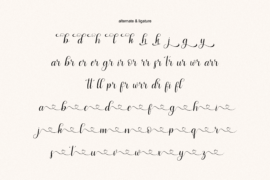 alternate & ligature
b d h l k h k j g y
ar br er er gr ir or rr sr tr ur wr arr
tt ll pr fr wrr dr fi fl
a b c d e f g h i
j k l m n o p q r
s t u v w x y z